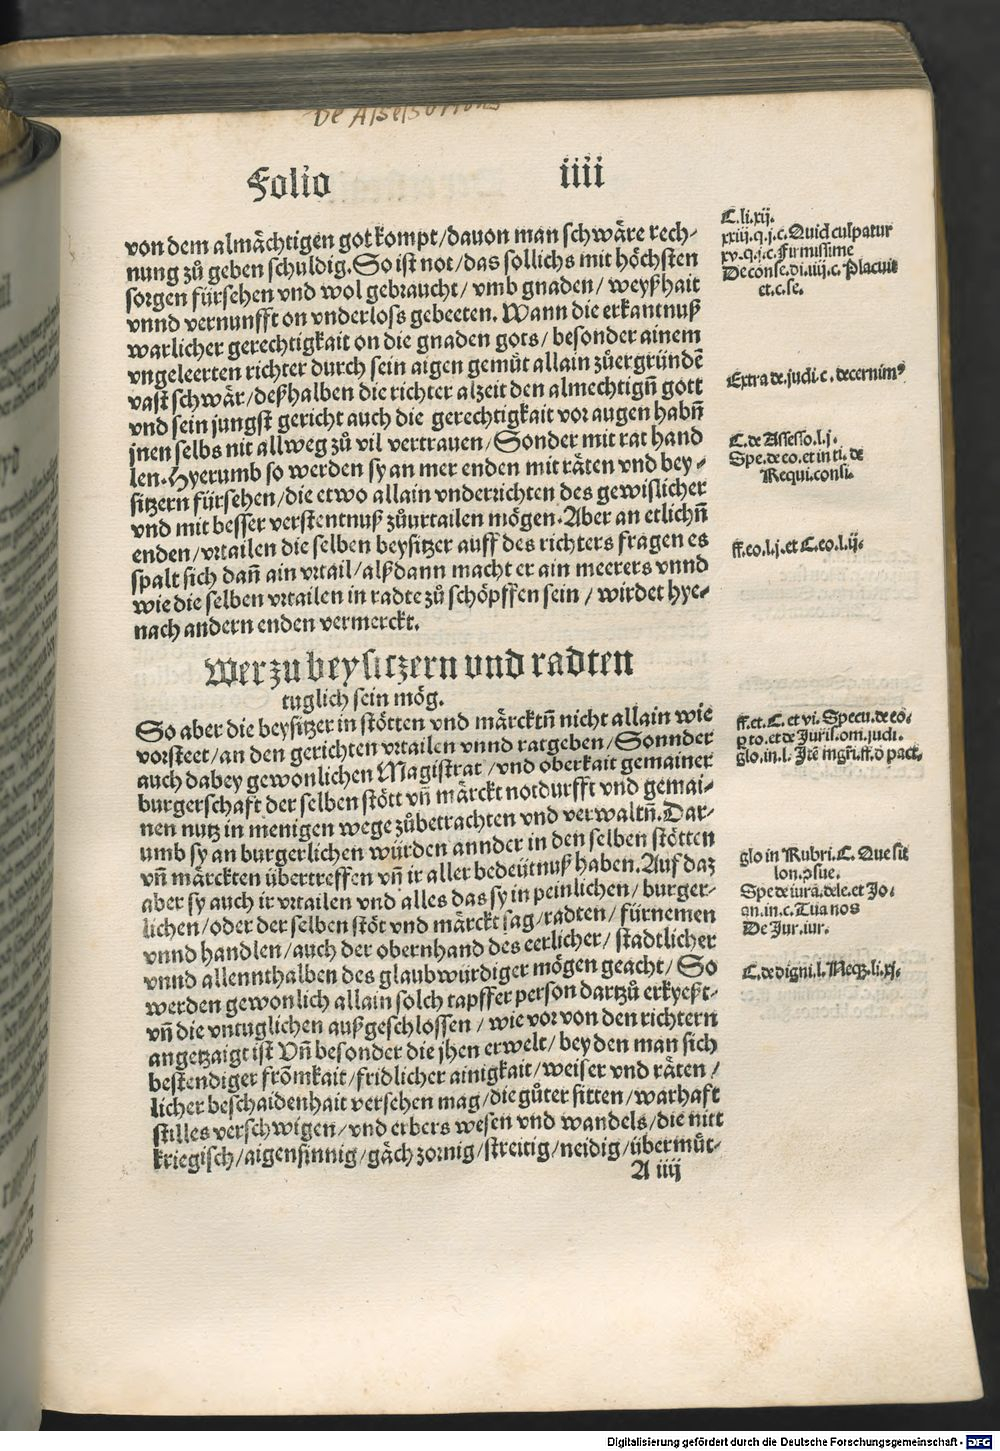 De Assessorions
Folio iiii
von dem almächtigen got kompt/dauon man schwäre rech-
nung zů geben schuldig. So ist not/das sollichs mit höchsten
sorgen fürsehen vnd wol gebraucht/ vmb gnaden/ weyßhait
vnnd vernunfft on vnderloss gebeeten. Wann die erkantnuß
warlicher gerechtigkait on die gnaden gots/ besonder ainem
vngeleerten richter durch sein aigen gemüt allain zůergründē
vast schwär/deßhalben die richter alzeit den almechtign̄ gott
vnd sein jungst gericht auch die gerechtigkait vor augen habn̄
jnen selbs nit allweg zů vil vertrauen/Sonder mit rat hand
len. Hyerumb so werden sy an mer enden mit räten vnd bey-
sitzern fürsehen/die etwo allain vnderrichten des gewislicher
vnd mit besser verstentnuß zůurtailen mögen. Aber an etlichn̄
enden/vrtailen die selben beysitzer auff des richters fragen es
spalt sich dan̄ ain vrtail/alßdann macht er ain meerers vnnd
wie die selben vrtailen in radte zů schöpffen sein/ wirdet hye-
nach andern enden vermerckt.
Wer zu beysitzern und radten
tuglich sein mög.
So aber die beysitzer in stötten vnd märcktn̄ nicht allain wie
vorsteet/an den gerichten vrtailen vnnd ratgeben/Sonnder
auch dabey gewonlichen Magistrat/vnd oberkait gemainer
burgerschaft der selben stött vn̄ märckt notdurfft vnd gemai-
nen nutz in menigen wege zůbetrachten vnd verwaltn̄. Dar-
umb sy an burgerlichen würden annder in den selben stötten
vn̄ märckten übertreffen vn̄ ir aller bedeütnuß haben. Auf daz
aber sy auch ir vrtailen vnd alles das sy in peinlichen/ burger-
lichen/oder der selben stöt vnd märckt sag/radten/ fürnemen
vnnd handlen/auch der obernhand des eerlicher/ stadtlicher
vnnd allennthalben des glaubwürdiger mögen geacht/ So
werden gewonlich allain solch tapffer person dartzů erkyeßt-
vn̄ die vntuglichen außgeschlossen/ wie vor von den richtern
angetzaigt ist Vn̄ besonder die jhen erwelt/ bey den man sich
bestendiger frömkait/fridlicher ainigkait/weiser vnd räten/
licher beschaidenhait versehen mag/die gůter sitten/warhaft
stilles verschwigen/vnd erbers wesen vnd wandels/die nitt
kriegisch/aigensinnig/gäch zornig/streitig/neidig/übermüt-
A iiij
C. li. xij.
xxiij. q. j. c. Quid culpatur
xv. q. j. c. Firmissime
De conse. di. iiij. c. Placuit
et. c. se.
Extra de. judi. c. decernim⁹
C. de Assesso. l. j.
Spe. de eo. et in ti. de
Requi. consi.
ff. eo. l. j. et C. eo. l. ij.
ff. et. C. et vi. Specu. de eo.
p to. et de Juris. om. judi.
glo. in. l. Itē mgr̄i. ff. ð pact.
glo in Rubri. C. Que sit
lon. psue.
Spe de iura. dele. et Jo.
an. in. c. Tua nos
De Jur. iur.
C. de digni. l. Neqz. li. xj.
Digitalisierung gefördert durch die Deutsche Forschungsgemeinschaft - DFG